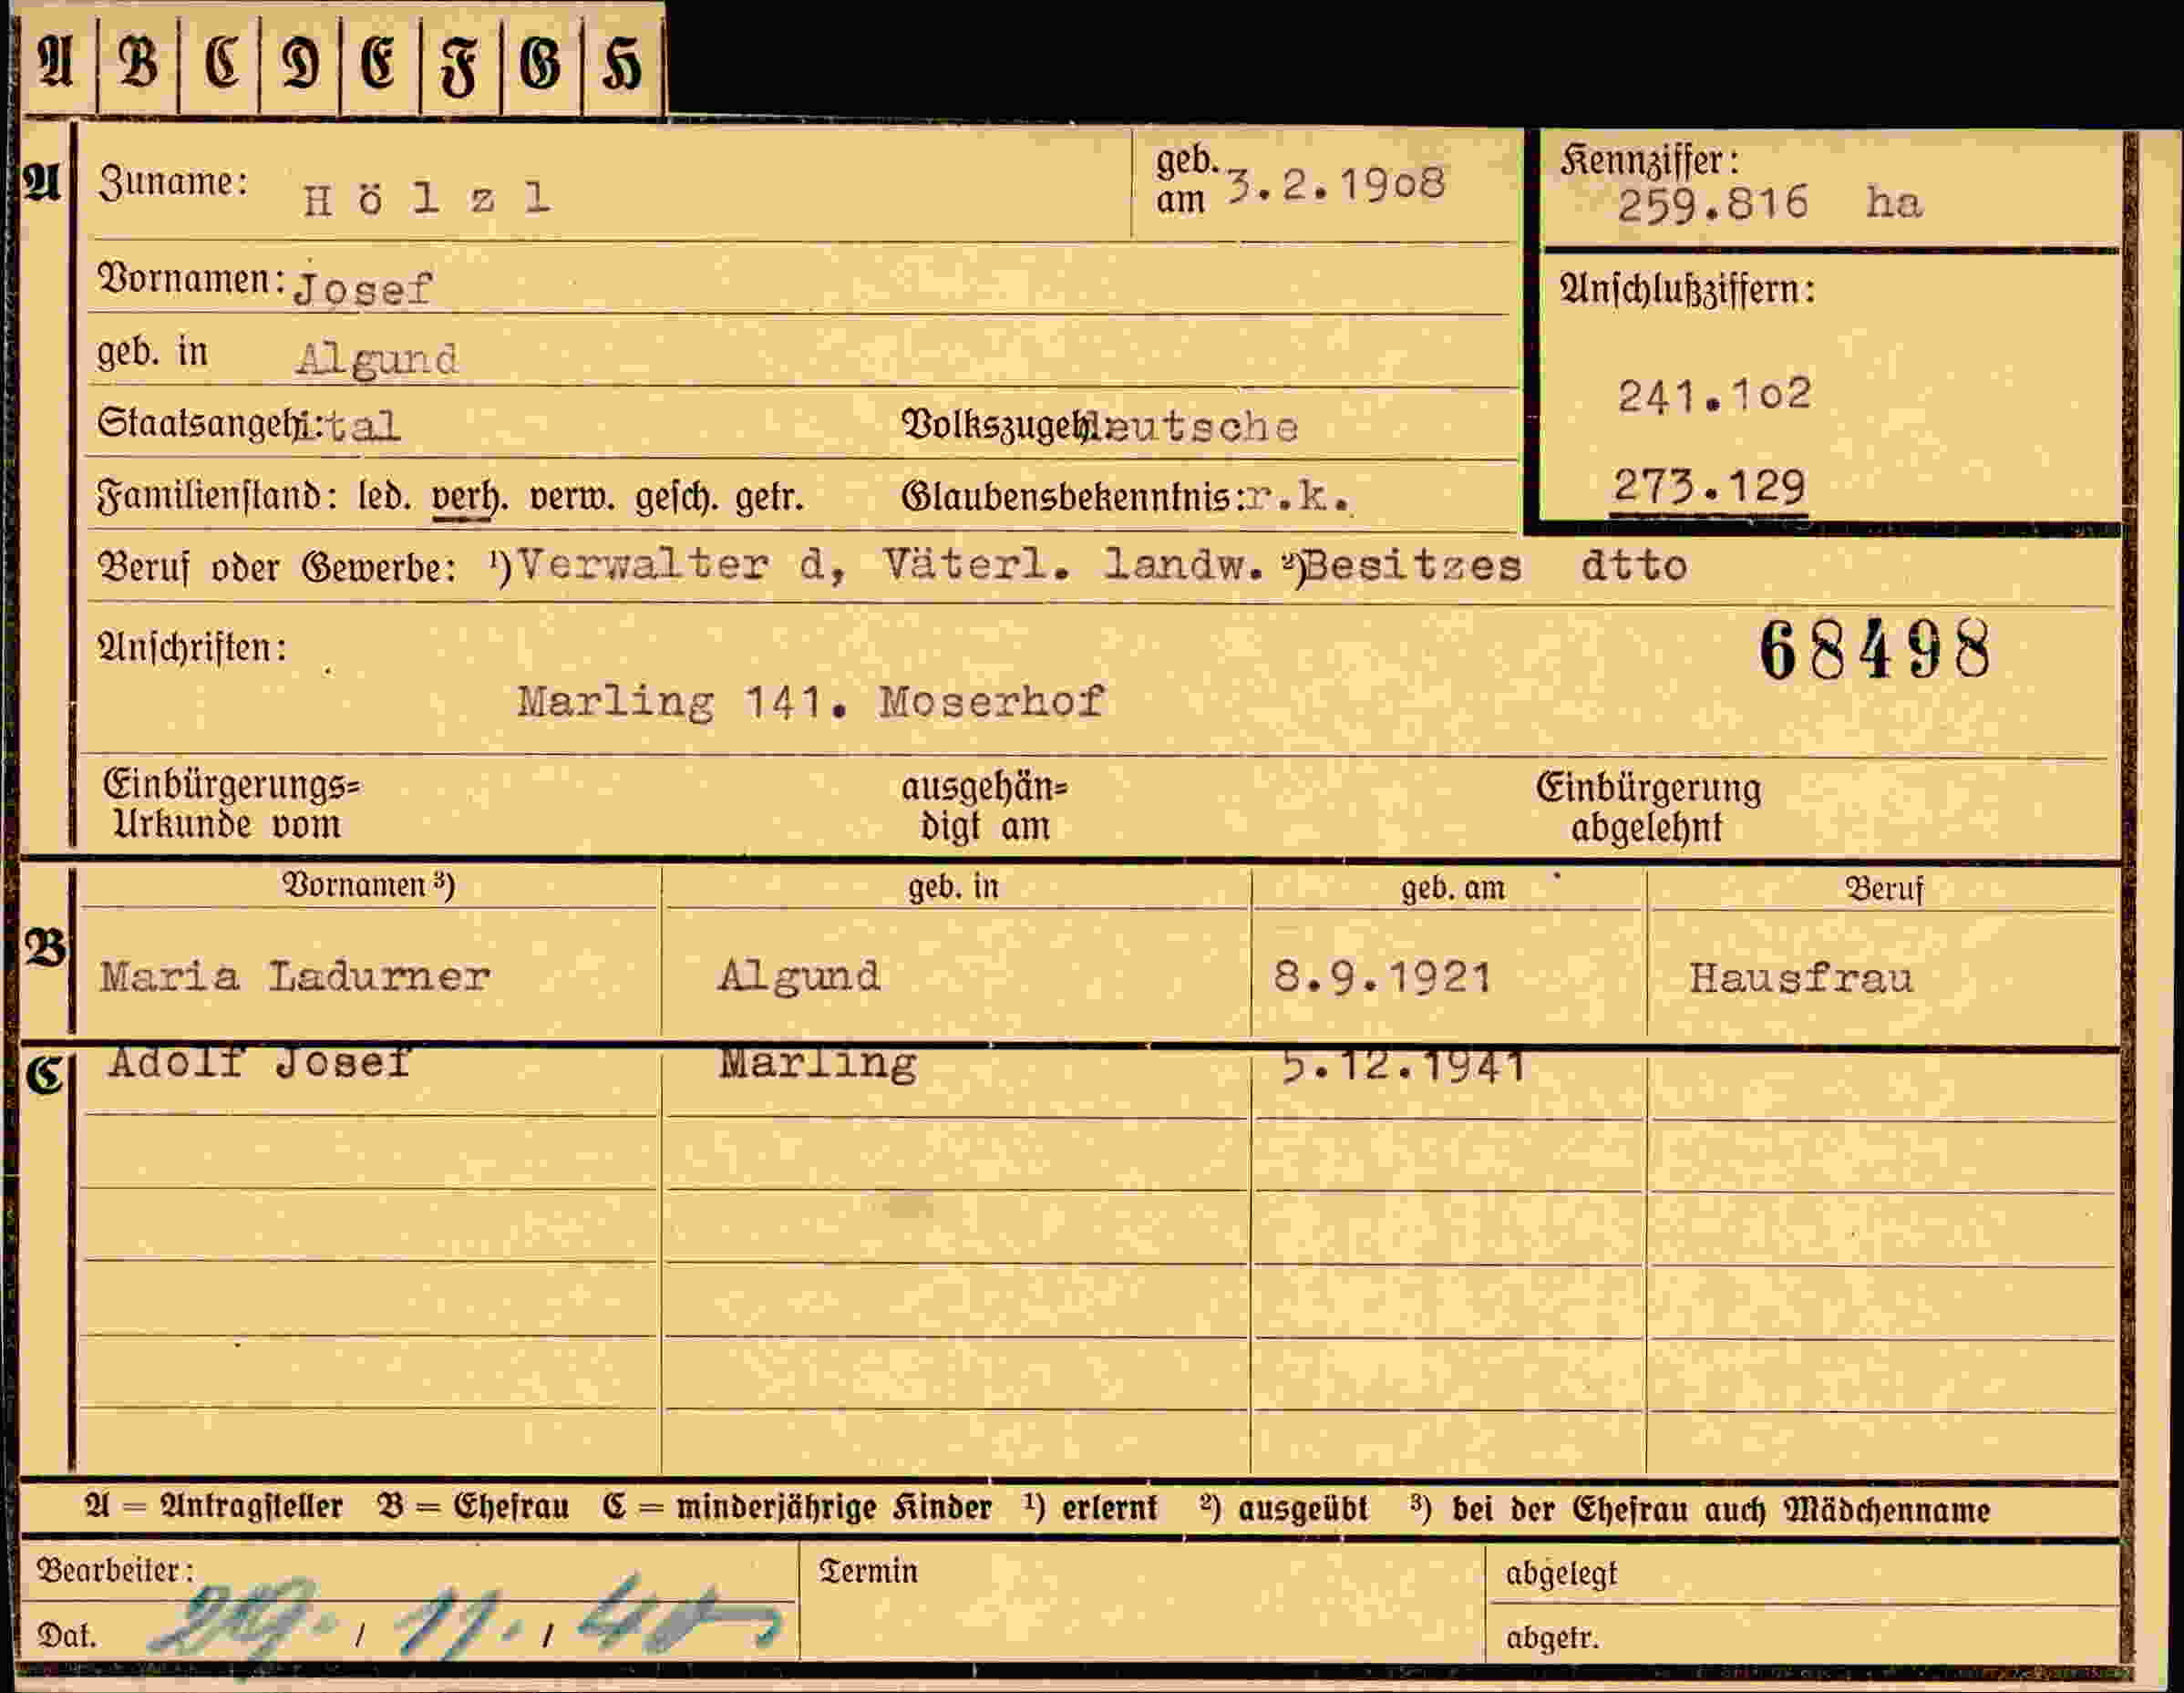 A B C D E F G H
A Zuname: Hölzl geb. am 3.2.1908 Kennziffer: 259.816 ha
Vornamen: Josef Anschlußziffern:
geb. in Algund
241.1o2
Staatsangeh.: ital Volkszugeh. deutsche
273.129
Familienstand: led. verh. verw. gesch. getr. Glaubensbekenntnis: r.k.
Beruf oder Gewerbe: ¹) Verwalter d, Väterl. landw. ²) Besitzes dtto
Anschriften: 68498
Marling 141. Moserhof
Einbürgerungs= ausgehän= Einbürgerung
Urkunde vom digt am abgelehnt
Vornamen ³) geb. in geb. am Beruf
B Maria Ladurner Algund 8.9.1921 Hausfrau
C Adolf Josef Marling 5.12.1941
A = Antragsteller B = Ehefrau C = minderjährige Kinder ¹) erlernt ²) ausgeübt ³) bei der Ehefrau auch Mädchenname
Bearbeiter: Termin abgelegt
Dat. / 11. / abgetr.